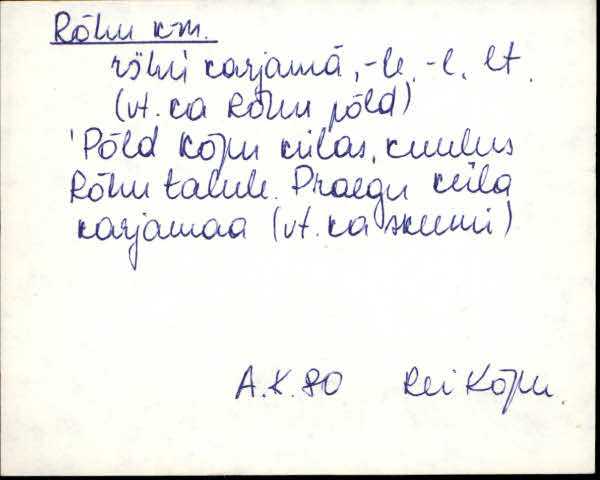 Rõhu k-m.
rõhu karjamā, -le, -l, lt.
(vt. ka Rõhu põld)
'Põld Kõpu külas, kuulus
Rõhu talule. Praegu küla
karjamaa (vt. ka skeemi)
A.K. 80 Rei Kõpu.